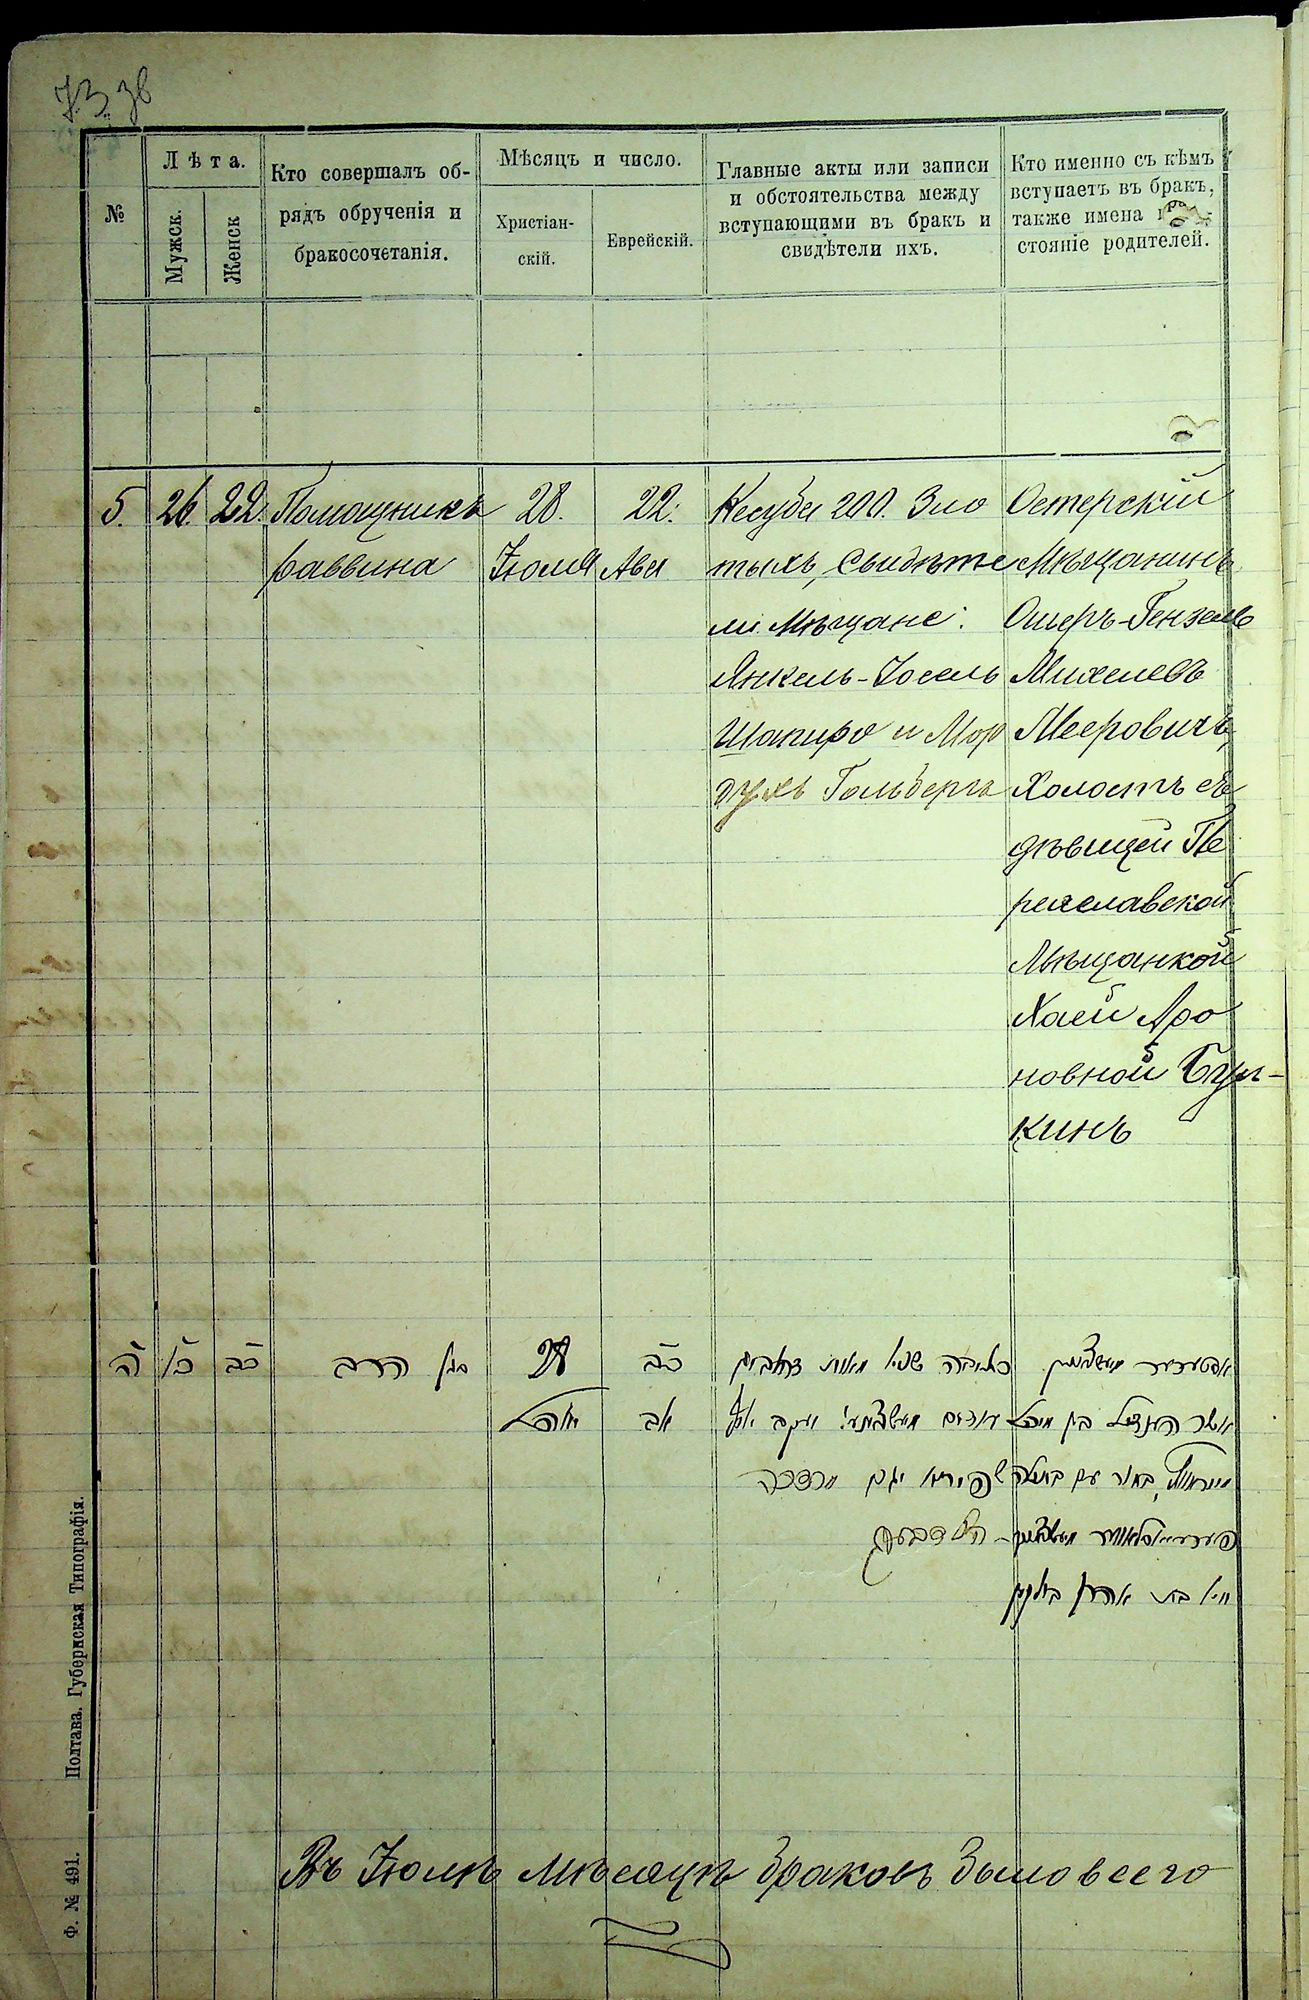 73 38
№
Лѣта.
Мужск.
Женск
Кто совершалъ об-
рядъ обрученія и
бракосочетанія.
Мѣсяцъ и число.
Христіан-
скій.
Еврейскій.
Главные акты или записи
и обстоятельства между
вступающими въ бракъ и
свидѣтели ихъ.
Кто именно съ кѣмъ
вступаетъ въ бракъ,
также имена
стояніе родителей.
5.
26.
22.
Помощникъ
раввина
28.
Іюля
22.
Ава
Кесуба 200. Зло
тыхъ, Свидѣте
ли Мѣщане:
Янкель-Іосель
Шапиро и Мор
духъ Гольберга
Остерскій
Мѣщанинъ
Ошеръ-Гензель
Михелевъ
Мееровичъ,
Холостъ съ
дѣвицей Пе
реяславской
Мѣщанкой
Хаей Аро
новной Бул-
кинъ
ה
כו
כב
הרב
28
כב
אב
כתובה מאות זהובים
עדים יעקב יוסף
שפירא מרדכי
אשר הענדיל בן מיכל
בחור עם בתולה
חיא בת אהרן
Въ Іюлѣ мѣсяцѣ браковъ было всего
Полтава. Губернская Типографія.
Ф. № 491.